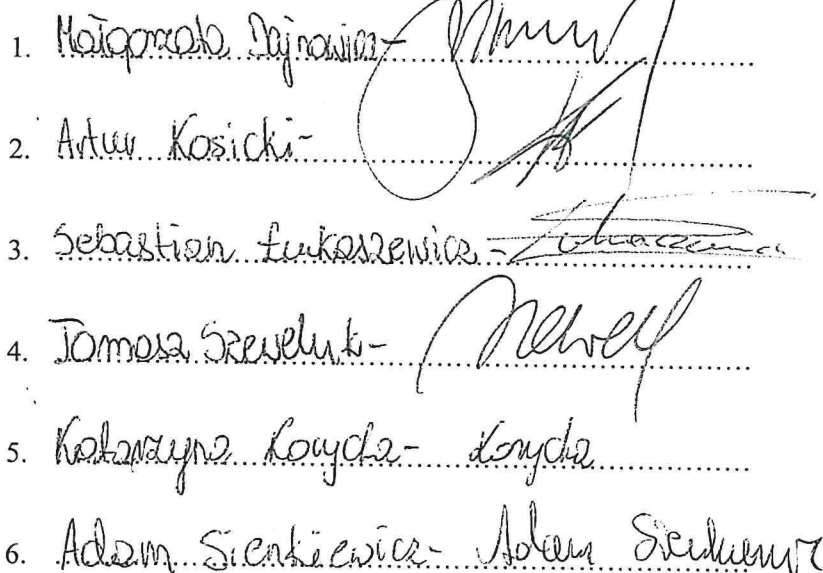 1. Małgorzata Dajnowicz-
2. Artur Kosicki-
3. Sebastian Łukaszewicz- Łukaszewicz
4. Tomasz Szeweluk-
5. Katarzyna Korycka- Korycka
6. Adam Sienkiewicz- Adam Sienkiewicz